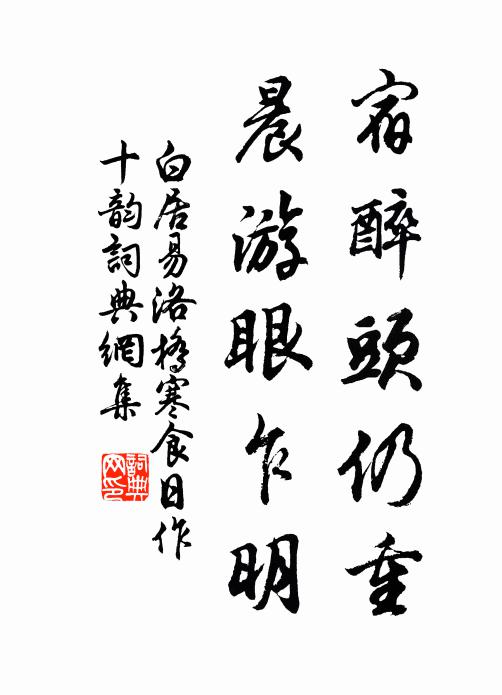 宿醉頭仍重
晨游眼乍明
白居易洛橋寒食日作
十韵詞典網集
詞典
网印